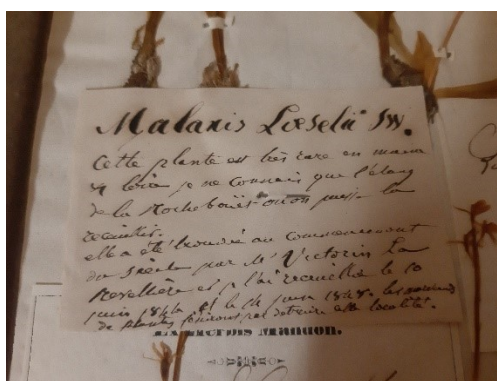 Malaxis Loeselii Sw.
Cette plante est très rare en maine
et loire je ne connais que l'étang
de la Rochebouët où on puisse la
recueillir.
elle a été trouvée au commencement
du siècle par Mr Victorin La
Revellière et je l'ai recueillie le 10
juin 1846 et le 14 juin 1848. les
de plantes finiront par détruire cette localité.
Mandon.